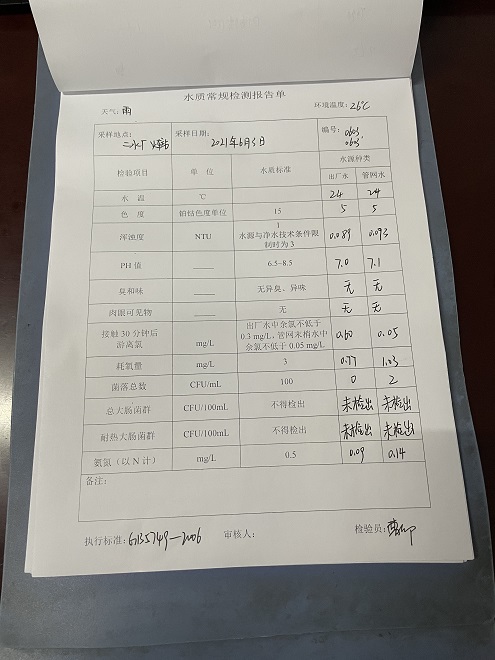 水质常规检测报告单
天气: 雨 环境温度: 26℃
采样地点: 二水厂 采样日期: 2021年6月3日 编号: 0603
0603'
检验项目 单 位 水质标准 水源种类
出厂水 管网水
水 温 ℃ 24 24
色 度 铂钴色度单位 15 5 5
浑浊度 NTU 1
水源与净水技术条件限
制时为 3 0.089 0.093
PH 值 —— 6.5~8.5 7.0 7.1
臭和味 —— 无异臭、异味 无 无
肉眼可见物 —— 无 无 无
接触 30 分钟后
游离氯 mg/L 出厂水中余氯不低于
0.3 mg/L,管网末梢水中
余氯不低于 0.05 mg/L 0.60 0.05
耗氧量 mg/L 3 0.77 1.03
菌落总数 CFU/mL 100 0 2
总大肠菌群 CFU/100mL 不得检出 未检出 未检出
耐热大肠菌群 CFU/100mL 不得检出 未检出 未检出
氨氮(以 N 计) mg/L 0.5 0.09 0.14
备注:
执行标准: GB5749—2006 审核人: 检验员: